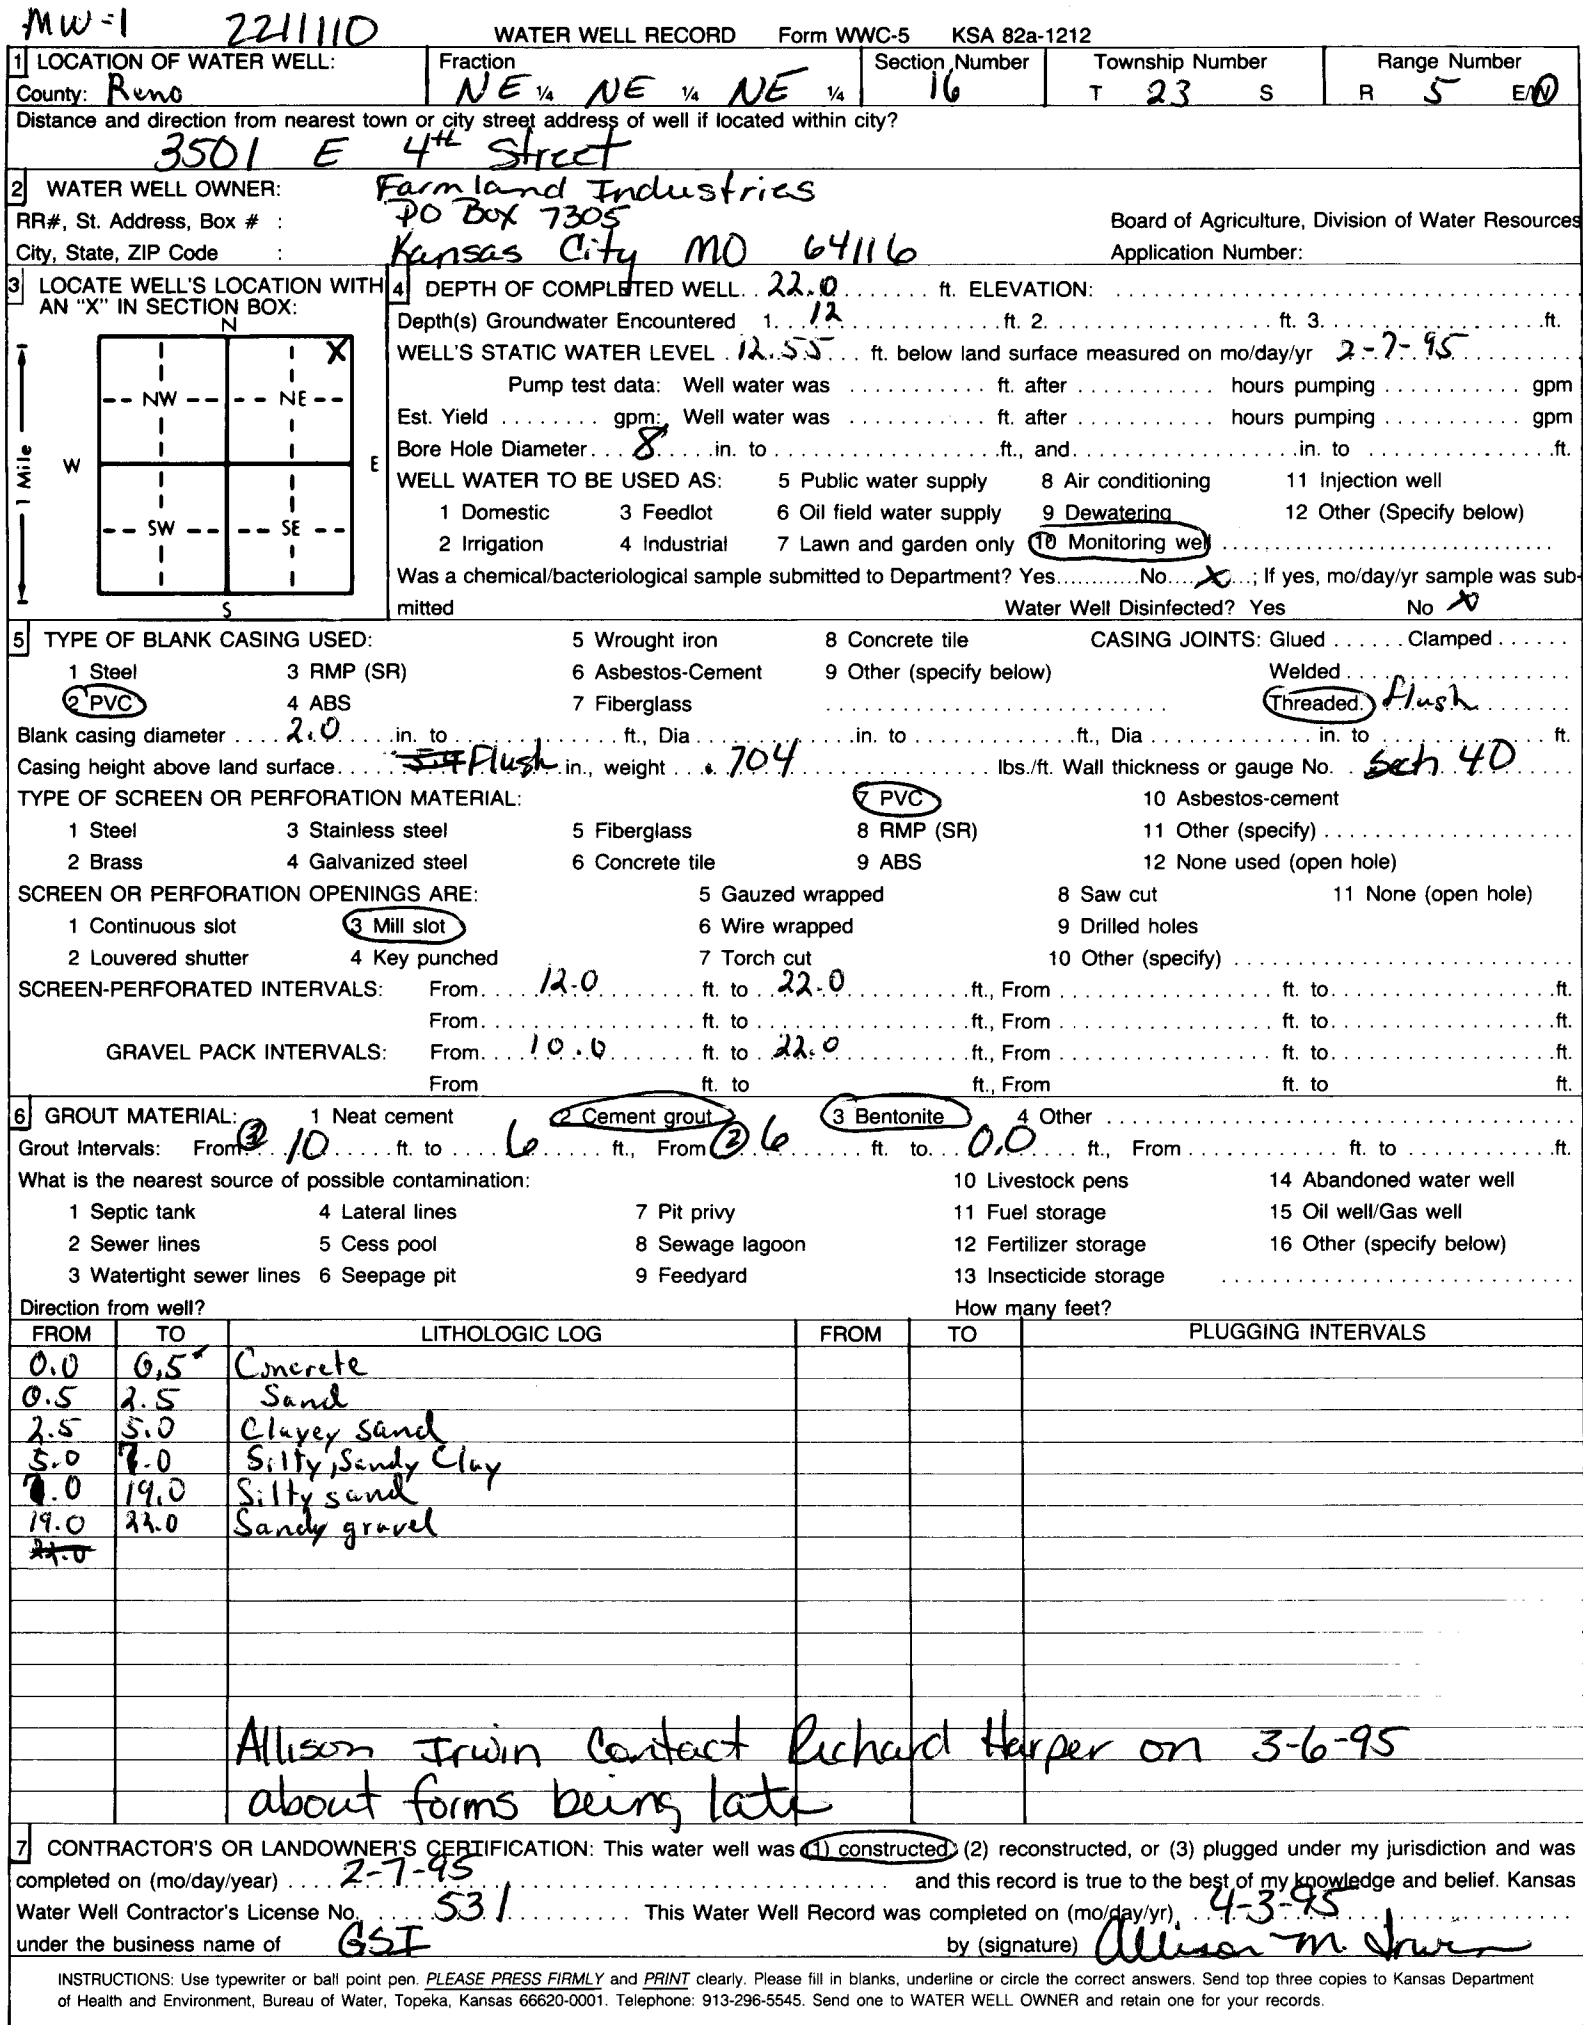 MW-1 2211110 WATER WELL RECORD Form WWC-5 KSA 82a-1212
1 LOCATION OF WATER WELL: Fraction Section Number Township Number Range Number
County: Reno NE 1/4 NE 1/4 NE 1/4 16 T 23 S R 5 E/W
Distance and direction from nearest town or city street address of well if located within city?
3501 E 4th Street
2 WATER WELL OWNER: Farmland Industries
RR#, St. Address, Box # : PO Box 7305 Board of Agriculture, Division of Water Resources
City, State, ZIP Code : Kansas City MO 64116 Application Number:
3 LOCATE WELL'S LOCATION WITH AN "X" IN SECTION BOX:
N
X
NW NE
W E
1 Mile
SW SE
S
4 DEPTH OF COMPLETED WELL. 22.0 ft. ELEVATION:
Depth(s) Groundwater Encountered 1. 12 ft. 2. ft. 3. ft.
WELL'S STATIC WATER LEVEL 12.55 ft. below land surface measured on mo/day/yr 2-7-95
Pump test data: Well water was ft. after hours pumping gpm
Est. Yield gpm: Well water was ft. after hours pumping gpm
Bore Hole Diameter 8 in. to ft., and in. to ft.
WELL WATER TO BE USED AS: 5 Public water supply 8 Air conditioning 11 Injection well
1 Domestic 3 Feedlot 6 Oil field water supply 9 Dewatering 12 Other (Specify below)
2 Irrigation 4 Industrial 7 Lawn and garden only 10 Monitoring well
Was a chemical/bacteriological sample submitted to Department? Yes No X ; If yes, mo/day/yr sample was sub-
mitted Water Well Disinfected? Yes No X
5 TYPE OF BLANK CASING USED: 5 Wrought iron 8 Concrete tile CASING JOINTS: Glued Clamped
1 Steel 3 RMP (SR) 6 Asbestos-Cement 9 Other (specify below) Welded
2 PVC 4 ABS 7 Fiberglass Threaded. flush
Blank casing diameter 2.0 in. to ft., Dia in. to ft., Dia in. to ft.
Casing height above land surface Flush in., weight .704 lbs./ft. Wall thickness or gauge No. Sch 40
TYPE OF SCREEN OR PERFORATION MATERIAL: 7 PVC 10 Asbestos-cement
1 Steel 3 Stainless steel 5 Fiberglass 8 RMP (SR) 11 Other (specify)
2 Brass 4 Galvanized steel 6 Concrete tile 9 ABS 12 None used (open hole)
SCREEN OR PERFORATION OPENINGS ARE: 5 Gauzed wrapped 8 Saw cut 11 None (open hole)
1 Continuous slot 3 Mill slot 6 Wire wrapped 9 Drilled holes
2 Louvered shutter 4 Key punched 7 Torch cut 10 Other (specify)
SCREEN-PERFORATED INTERVALS: From 12.0 ft. to 22.0 ft., From ft. to ft.
From ft. to ft., From ft. to ft.
GRAVEL PACK INTERVALS: From 10.0 ft. to 22.0 ft., From ft. to ft.
From ft. to ft., From ft. to ft.
6 GROUT MATERIAL: 1 Neat cement 2 Cement grout 3 Bentonite 4 Other
Grout Intervals: From 3 10 ft. to 6 ft., From 2 6 ft. to 0.0 ft., From ft. to ft.
What is the nearest source of possible contamination: 10 Livestock pens 14 Abandoned water well
1 Septic tank 4 Lateral lines 7 Pit privy 11 Fuel storage 15 Oil well/Gas well
2 Sewer lines 5 Cess pool 8 Sewage lagoon 12 Fertilizer storage 16 Other (specify below)
3 Watertight sewer lines 6 Seepage pit 9 Feedyard 13 Insecticide storage
Direction from well? How many feet?
FROM TO LITHOLOGIC LOG FROM TO PLUGGING INTERVALS
0.0 0.5 Concrete
0.5 2.5 Sand
2.5 5.0 Clayey sand
5.0 7.0 Silty, Sandy Clay
7.0 19.0 Silty sand
19.0 22.0 Sandy gravel
22.0
Allison Irwin Contact Richard Harper on 3-6-95
about forms being late
7 CONTRACTOR'S OR LANDOWNER'S CERTIFICATION: This water well was (1) constructed, (2) reconstructed, or (3) plugged under my jurisdiction and was
completed on (mo/day/year) 2-7-95 and this record is true to the best of my knowledge and belief. Kansas
Water Well Contractor's License No. 531 This Water Well Record was completed on (mo/day/yr) 4-3-95
under the business name of GSI by (signature) Allison M. Irwin
INSTRUCTIONS: Use typewriter or ball point pen. PLEASE PRESS FIRMLY and PRINT clearly. Please fill in blanks, underline or circle the correct answers. Send top three copies to Kansas Department
of Health and Environment, Bureau of Water, Topeka, Kansas 66620-0001. Telephone: 913-296-5545. Send one to WATER WELL OWNER and retain one for your records.